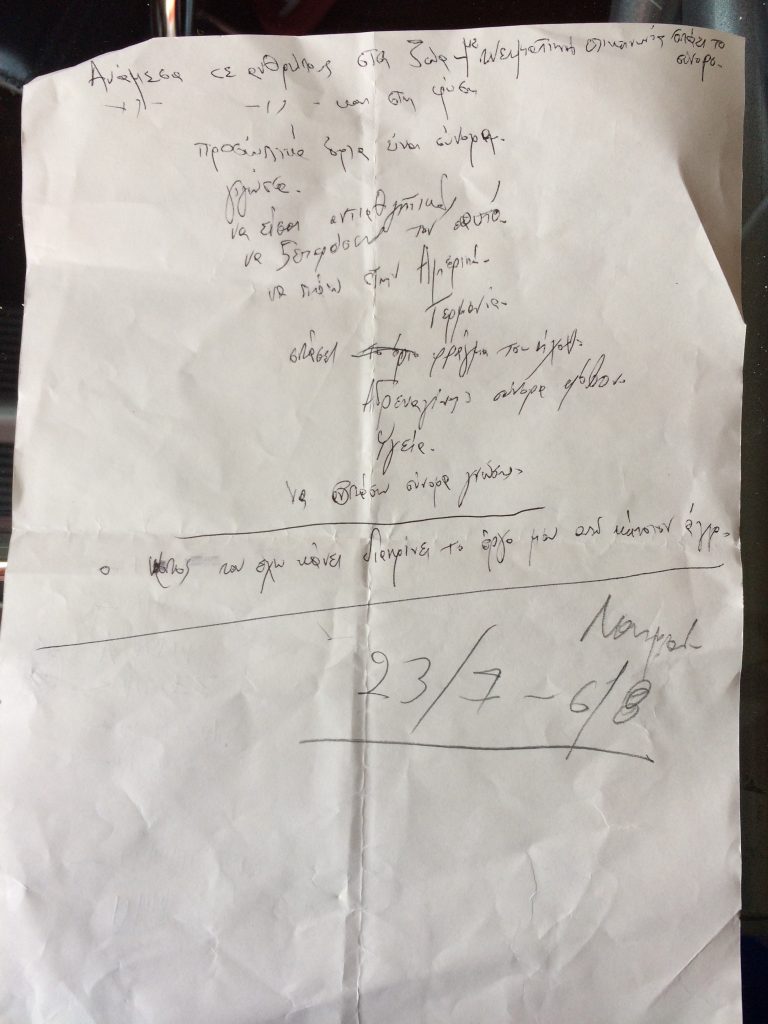 Ανάμεσα σε ανθρώπους στα ζώα - με πνευματική επικοινωνία σπάει το σύνορο.
-//- -//- και στη φύση
προσωπικά όρια είναι σύνορα.
γλώσσα.
να είσαι αντιρατσιστικός
να ξεπεράσεις τον εαυτό.
να πάω στην Αμερική.
Γερμανία.
σπάσει το όριο φράγμα του ήχου.
Αδρεναλίνης σύνορα φόβου.
Υγεία.
Να σπάσω σύνορα γνώσης.
ο που έχω κάνει διακρίνει το έργο μου από κάποιον άλλο.
23/7 - 6/8